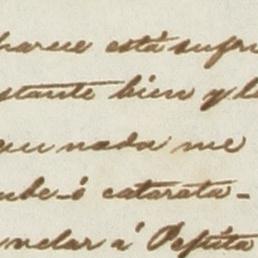 parece está sufri
stante bien y l
que nada me
ube ó catarata-
nelar á Pepita